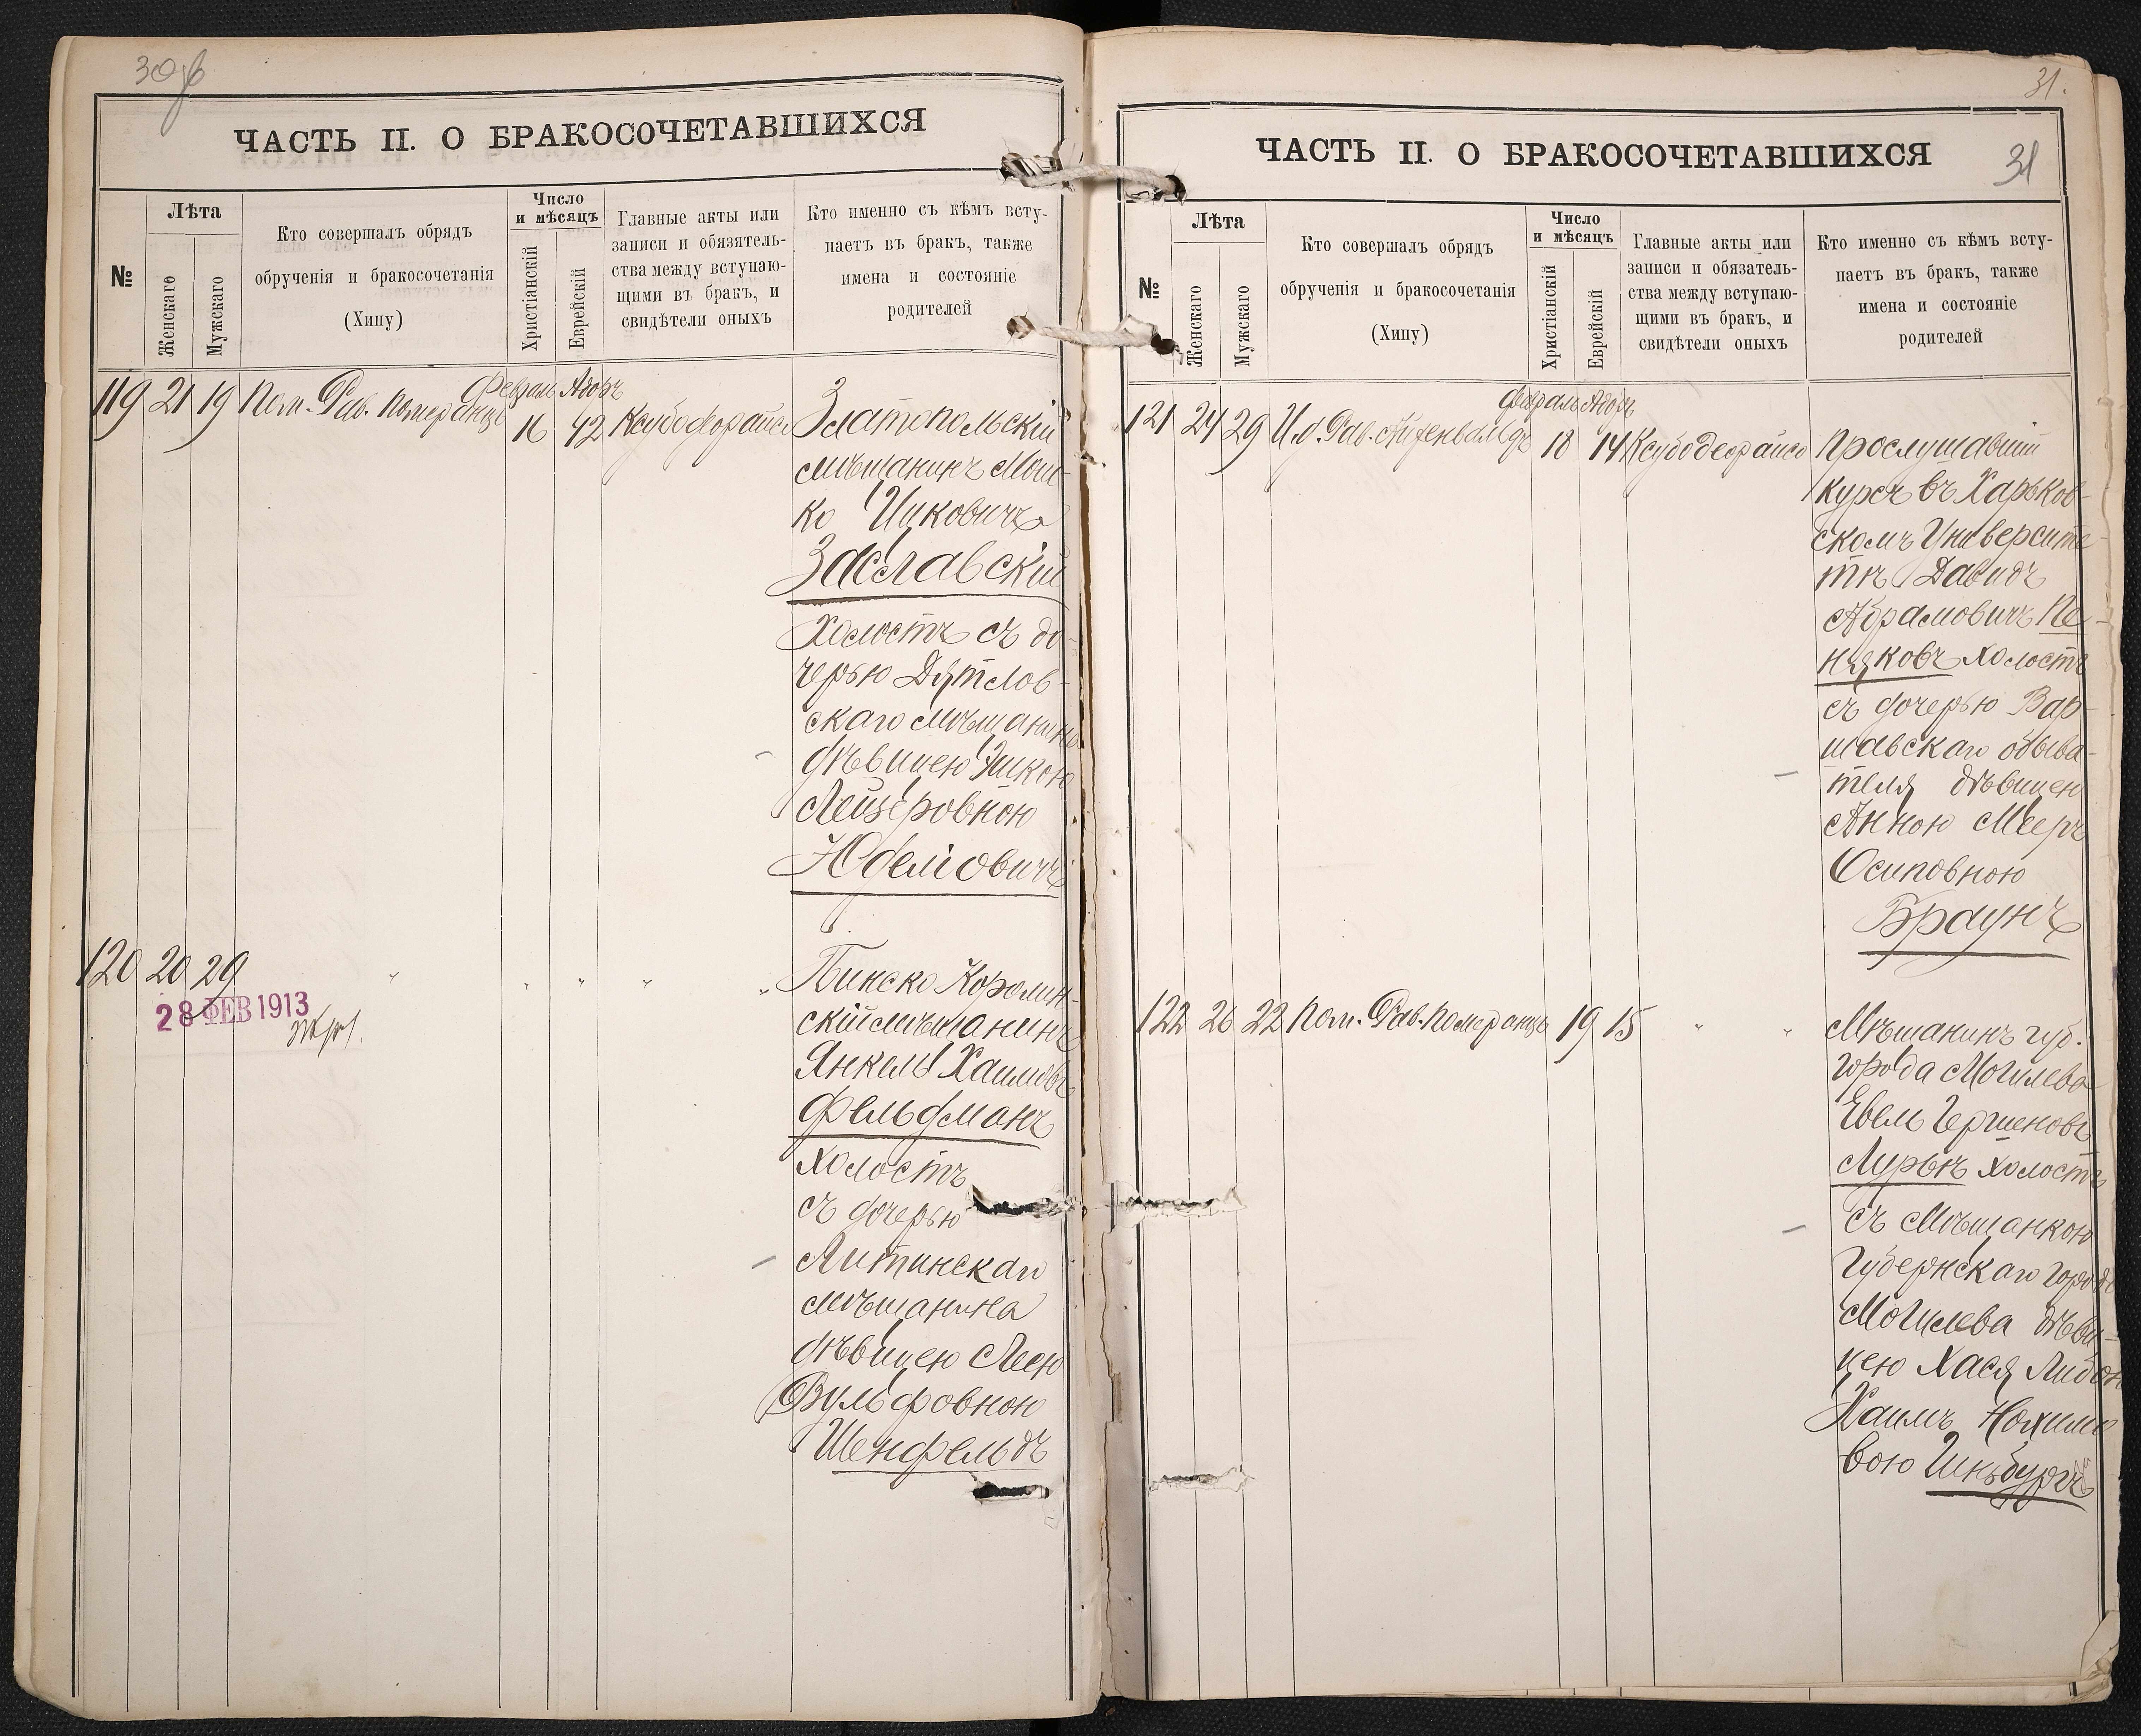 30об
ЧАСТЬ II. О БРАКОСОЧЕТАВШИХСЯ
№
Лѣта
Женскаго
Мужскаго
Кто совершалъ обрядъ
обрученія и бракосочетанія
(Хипу)
Число
и мѣсяцъ
Христіанскій
Еврейскій
Главные акты или
записи и обязятель-
ства между вступаю-
щими въ бракъ, и
свидѣтели оныхъ
Кто именно съ кѣмъ всту-
паетъ въ бракъ, также
имена и состояніе
родителей
Февраль Адоръ
119 21 19 Пом. Рав. Померанцъ 16 12 Ксубодеорайсо
Златопольскій
мѣщанинъ Мош-
ко Ицковичъ
Заславскій
Холостъ съ до-
черью Дятлов-
скаго мѣщанина
дѣвицею Эшкою
Лейзеровною
Юделiовичъ
120 20 29 " " " " "
Пинско Каролин-
скій мѣщанинъ
Янкель Хаимовъ
Фельдманъ
холостъ
съ дочерью
Литинскаго
мѣщанина
дѣвицею Леею
Вульфовною
Шенфельдъ
28 ФЕВ 1913
31.
31
ЧАСТЬ II. О БРАКОСОЧЕТАВШИХСЯ
№
Лѣта
Женскаго
Мужскаго
Кто совершалъ обрядъ
обрученія и бракосочетанія
(Хипу)
Число
и мѣсяцъ
Христіанскій
Еврейскій
Главные акты или
записи и обязатель-
ства между вступаю-
щими въ бракъ, и
свидѣтели оныхъ
Кто именно съ кѣмъ всту-
паетъ въ бракъ, также
имена и состояніе
родителей
Февраль Адоръ
121 24 29 И.д. Рав. Айзенвальдъ 18 14 Ксубодеорайсо
Прослушавшій
курсъ въ Харьков-
скомъ Университе-
тѣ Давидъ
Абрамовичъ Пе-
няковъ холостъ
съ дочерью Вар-
шавскаго обыва-
теля дѣвицею
Анною Мееръ
Осиповною
Браунъ
122 26 22 Пом. Рав. Померанцъ 19 15 " "
Мѣщанинъ губ.
города Могилева
Евель Гершеновъ
Лурье холостъ
съ мѣщанкою
Губернскаго города
Могилева дѣви-
цею Хася Либою
Хаимъ Нохимо
вою Гинзбургъ